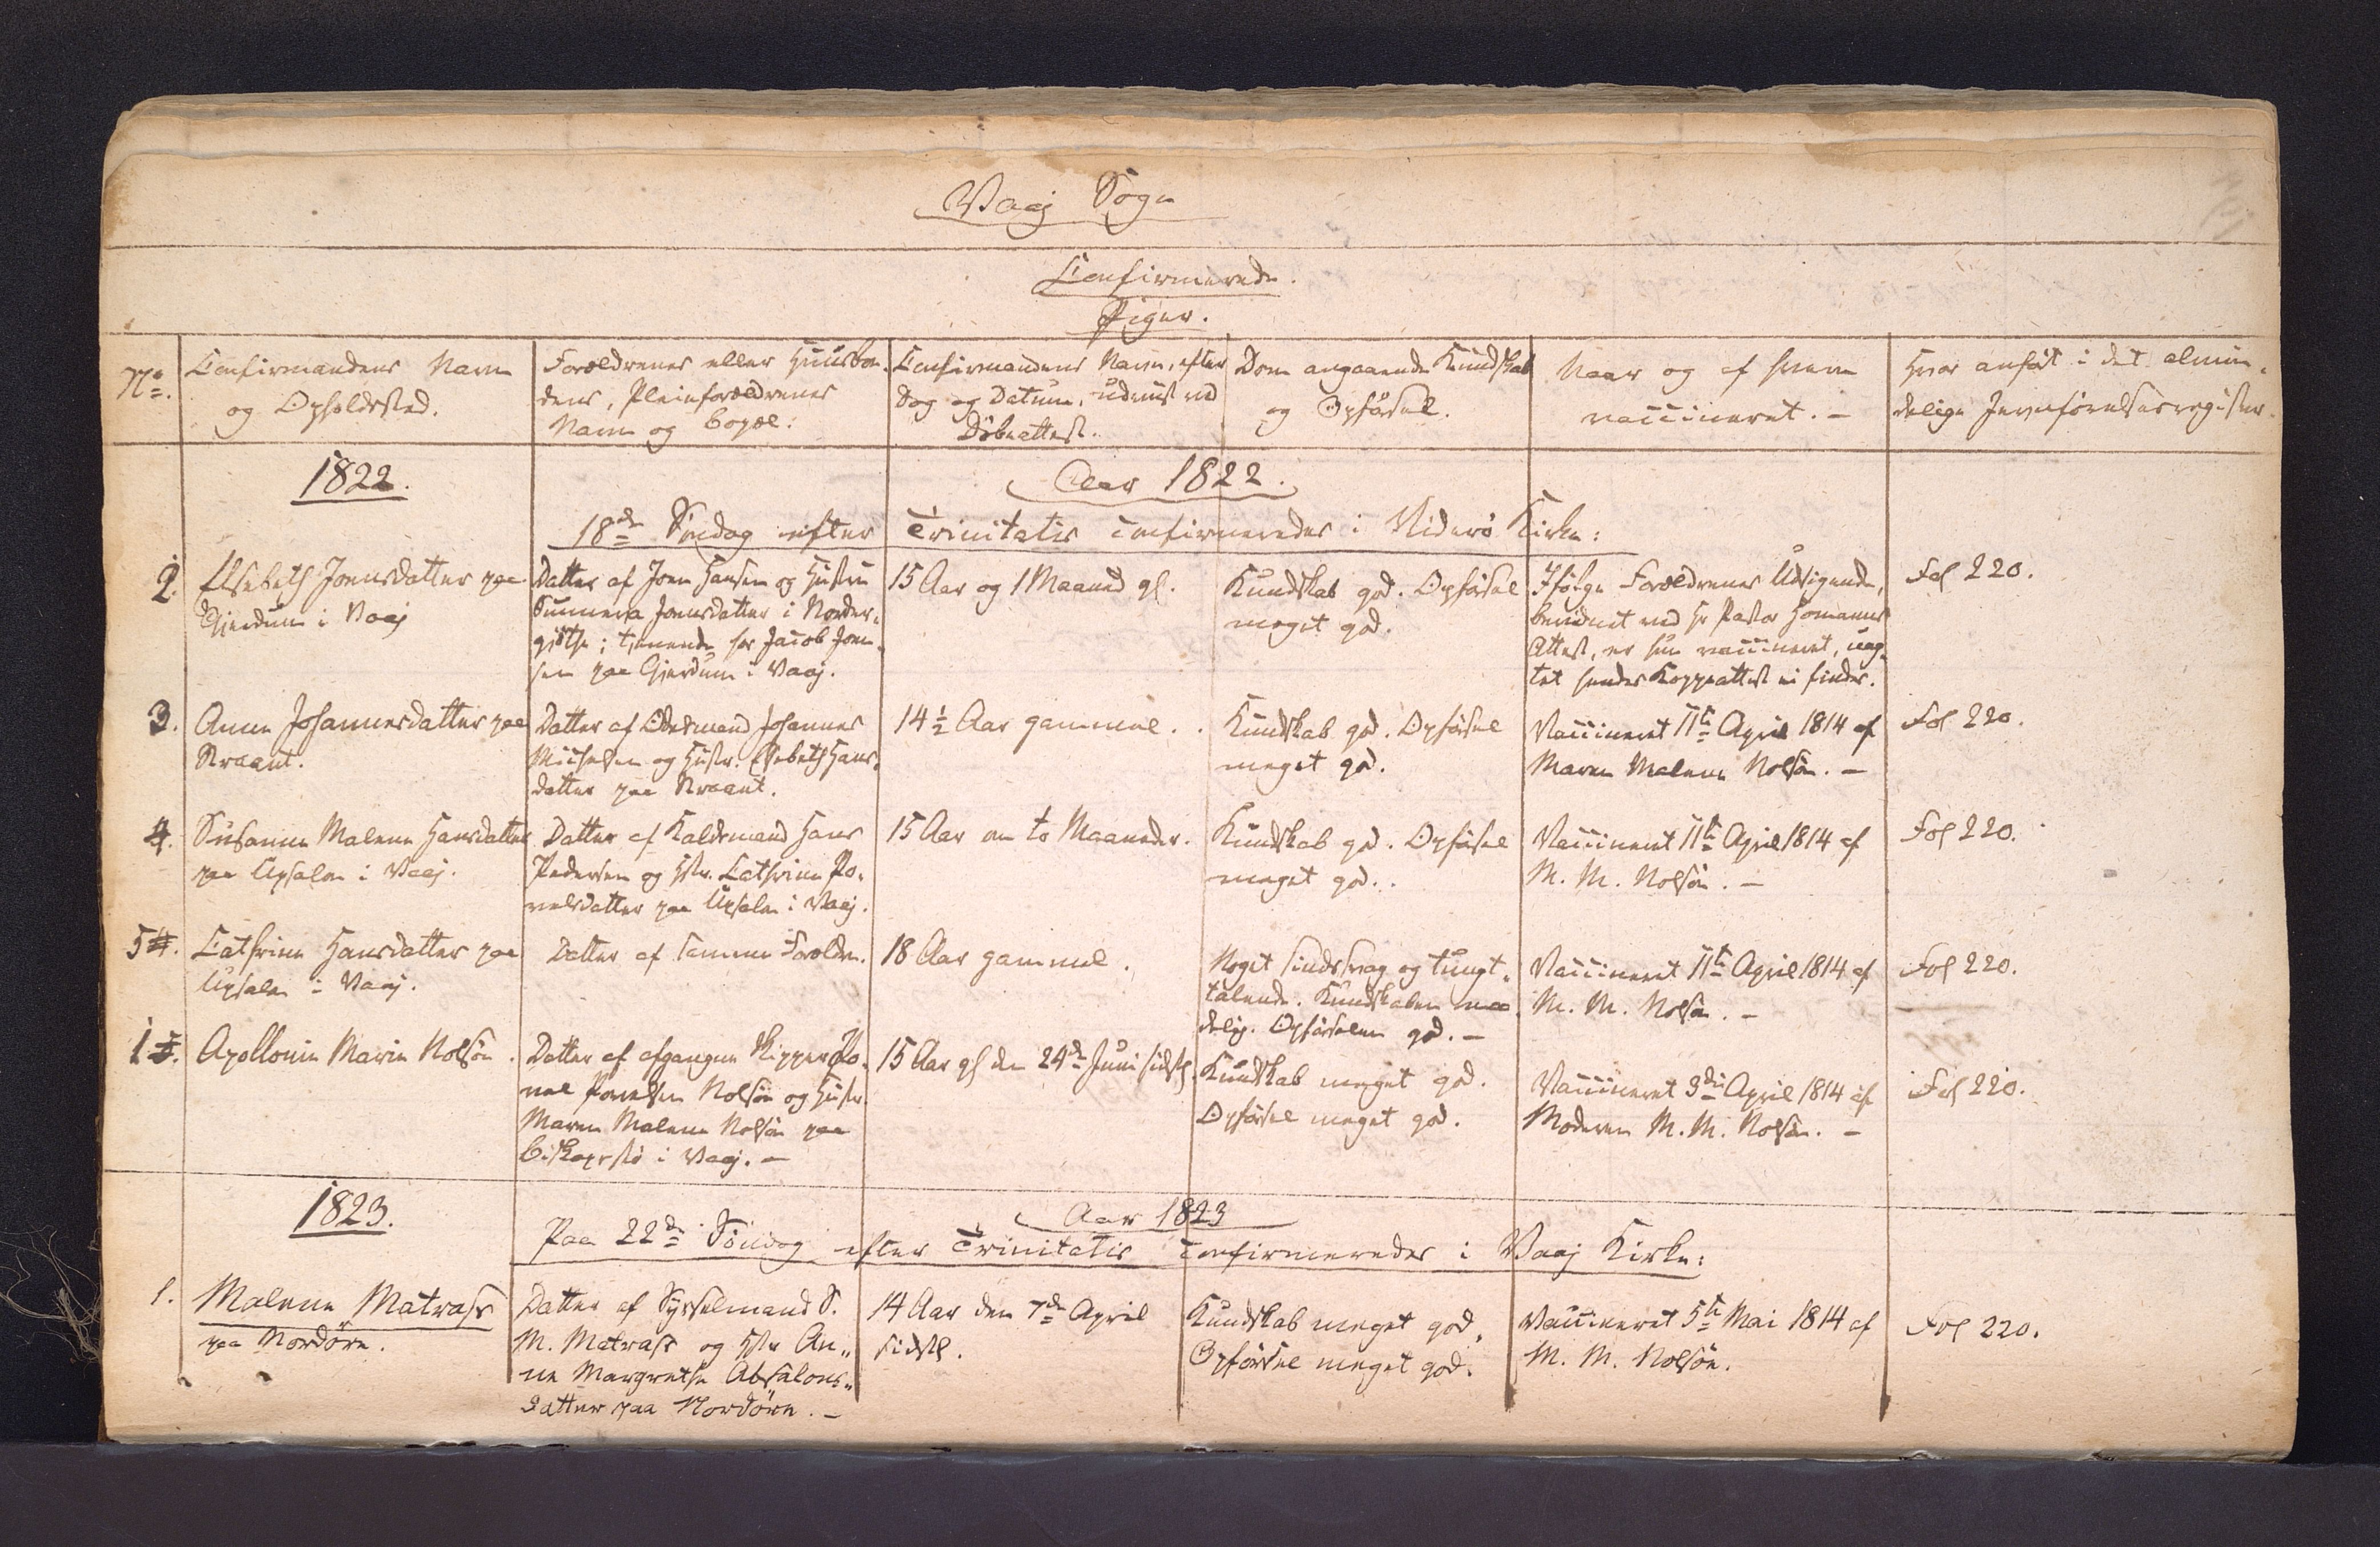 Vaaj Sogn
Confirmerede
Piger.
No.
Confirmandens Navn
og Opholdssted.
Forældrenes eller Huusbon-
dens, Pleieforældrenes
Navn og Bopæl:
Confirmandens Navn, efter
Dag og Datum, udviist ved
Döbeattest.
Dom angaaende Kundskab
og Opförsel.
Naar og af hvem
vaccineret. -
Hvor anfört i det almin-
delige Jevnförelsesregister.
1822.
Aar 1822.
18de Söndag efter Trinitatis confirmeredes i Viderö Kirke:
2.
Elsebeth Joensdatter paa
Gjerdum i Vaaj
Datter af Joen Hansen og Hustru
Sunneva Joensdatter i Norder-
gjöthe; tjenende hos Jacob Joen-
sen paa Gjerdum i Vaaj.
15 Aar og 1 Maaned gl.
Kundskab god. Opförsel
meget god.
Ifölge Forældrenes Udsigende,
bevidnet ved Hr Pastor Homanns
Attest, er hun vaccineret, uag-
tet hendes Koppeattest ei findes.
Fol 220.
3.
Anne Johannesdatter paa
Straant.
Datter af Odelsmand Johannes
Michelsen og Hustr. Elsebeth Hans-
datter paa Straant.
14 1/2 Aar gammel.
Kundskab god. Opförsel
meget god.
Vaccineret 11te April 1814 af
Maren Malene Nolsöe. -
Fol 220.
4.
Susanne Malene Hansdatter
paa Upsalen i Vaaj.
Datter af Kaldsmand Hans
Pedersen og Hstr. Cathrine Po-
velsdatter paa Upsalen i Vaaj.
15 Aar om to Maaneder.
Kundskab god. Opförsel
meget god.
Vaccineret 11te April 1814 af
M. M. Nolsöe. -
Fol 220.
5 4.
Cathrine Hansdatter paa
Upsalen i Vaaj.
Datter af samme Forældre.
18 Aar gammel.
Noget sindssvag og tungt-
talende. Kundskaben maa-
delig. Opförselen god. -
Vaccineret 11te April 1814 af
M. M. Nolsöe. -
Fol 220.
1 5.
Apollonia Maria Nolsöe.
Datter af afgangne Skipper Po-
vel Povelsen Nolsöe og Hustr.
Maren Malene Nolsöe paa
Biskopstö i Vaaj. -
15 Aar gl den 24de Juni sidstl.
Kundskab meget god.
Opförsel meget god.
Vaccineret 3die April 1814 af
Moderen M. M. Nolsöe. -
Fol 220.
1823.
Aar 1823
Paa 22de Söndag efter Trinitatis confirmeredes i Vaaj Kirke:
1.
Malene Matrass
paa Nordöre.
Datter af Sysselmand S.
M. Matrass og Hstr An-
ne Margrethe Absalons-
datter paa Nordöre. -
14 Aar den 7de April
sidstl.
Kundskab meget god,
Opförsel meget god.
Vaccineret 5te Mai 1814 af
M. M. Nolsöe.
Fol 220.